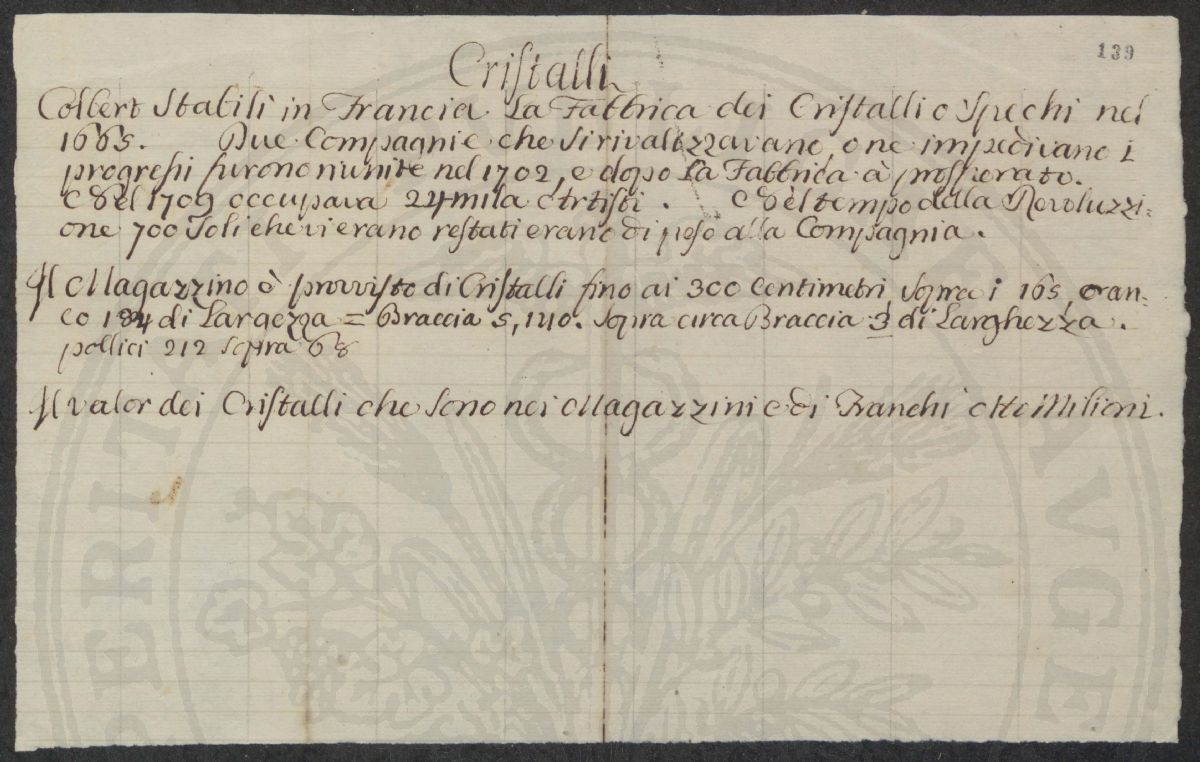 139
Cristalli
Colbert Stabili in Francia La Fabbrica dei Cristalli o Spechi nel
1665. Due Compagnie che si rivalizzavano, o ne impedivano i
progressi furono riunite nel 1702, e dopo La Fabbrica à prosperato.
Nel 1709 occupava 24 mila Artisti. Nel tempo della Revoluzzi:
one 700 Soli che vi erano restati erano di peso alla Compagnia.
Il Magazzino è provvisto di Cristalli fino ai 300 Centimetri, Sopra i 165, o an:
co 184 di Largezza = Braccia 5, 1/10. Sopra circa Braccia 3 di Larghezza.
pollici 212 Sopra 68
Il valor dei Cristalli che Sono nei Magazzini e di Franchi otto Milioni.
PERITA AUGE